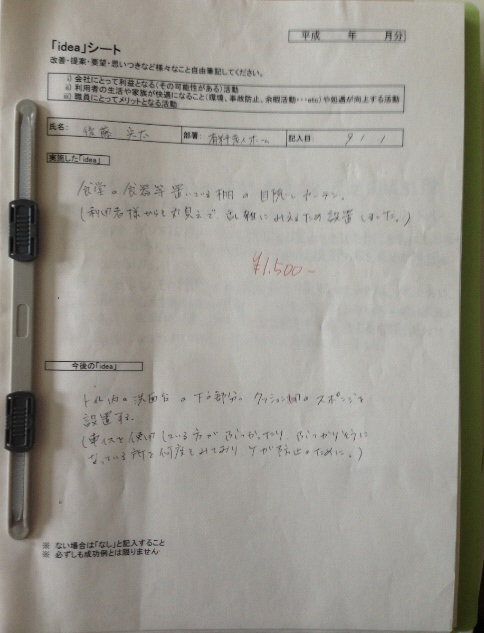 平成　　年　　月分
「idea」シート
改善・提案・要望・思いつきなど様々なこと自由筆記してください。
ⅰ) 会社にとって利益となる(その可能性がある)活動
ⅱ) 利用者の生活や家族が快適になること(環境、事故防止、余暇活動・・・etc)や処遇が向上する活動
ⅲ) 職員にとってメリットとなる活動
氏名: 佐藤 部署: 有料老人ホーム 記入日: 9/1
実施した「idea」
食堂の食器等置いている棚の目隠しカーテン。
(利用者様からも丸見えで、乱雑にみえるため設置しました。)
¥1,500-
今後の「idea」
トイレ内の洗面台の下の部分へクッション用のスポンジを
設置する。
(車イスを使用している方がぶつかったり、ぶつかりそうに
なっている所を何度もみており、ケガ防止のために。)
※ ない場合は「なし」と記入すること
※ 必ずしも成功例とは限りません